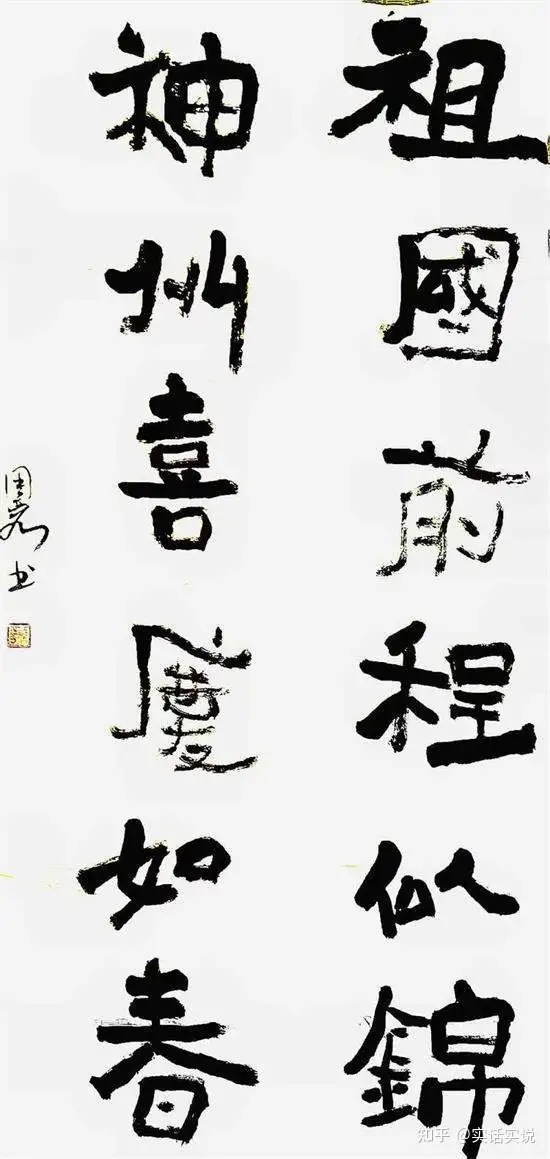 祖國前程似錦
神州喜慶如春
书
知乎 @实话实说